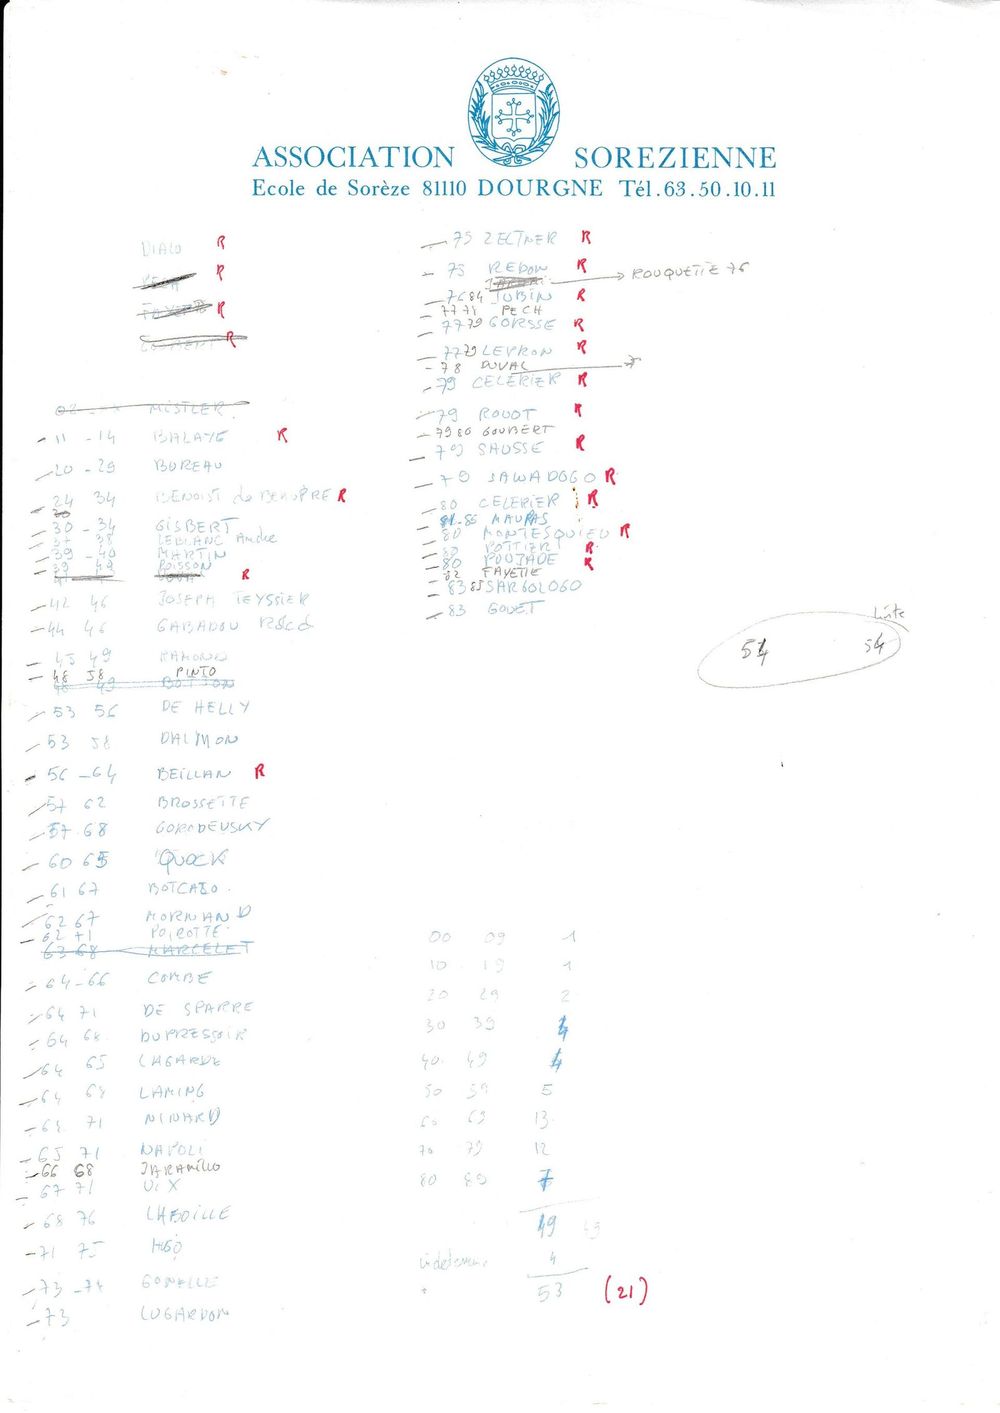 ASSOCIATION SOREZIENNE
Ecole de Sorèze 81110 DOURGNE Tél. 63.50.10.11
DIALO R
PECH R
FAYETTE R
GOUBERT R
02 MISTLER
11 - 14 BALAYE R
20 - 29 BUREAU
24 34 BENOIST de BEAUPRE R
30
30 - 34 GISBERT
37 38 LEBLANC Andre
39 - 40 MARTIN
39 49 POISSON
41 R
42 46 JOSEPH TEYSSIER
44 46 GABADOU
45 49 RAMOND
48 58 PINTO
48 49
53 56 DE HELLY
53 58 DALMON
56 - 64 BEILLAN R
57 62 BROSSETTE
57 68 GORODEVSKY
60 65 QUOCK
61 67 BOTCAZO.
62 67 MORNAND
62 71 POIROTTE
63 68 MARCELET
64 - 66 COMBE
64 71 DE SPARRE
64 68 DUPRESSOIR
64 65 LAGARDE
64 68 LAMING
64 71 NINARD
65 71 NAPOLI
66 68 JARAMILLO
67 71 VIX
68 76 LABOILLE
71 75 NGO
73 - 74 GONELLE
73 LUGARDON
75 ZELTNER R
75 REDON R
→ ROUQUETTE 76
76 84 JUBIN R
77 78 PECH
77 79 GORSSE R
77 79 LEVRON R
78 DUVAL
79 CELERIER R
79 ROUOT R
79 80 GOUBERT
79 SAUSSE R
79 SAWADOGO R
80 CELERIER R
81-86 MAUPAS
80 MONTESQUIEU R
80 POTTIER R
80 POUJADE R
82 FAYETTE
83 85 SARGOLOGO
83 GOUET
Liste
54 54
00 09 1
10 19 1
20 29 2
30 39 4
40 49 4
50 59 5
60 69 13
70 79 12
80 89 7
49 49
indetermine 4
+ 53 (21)